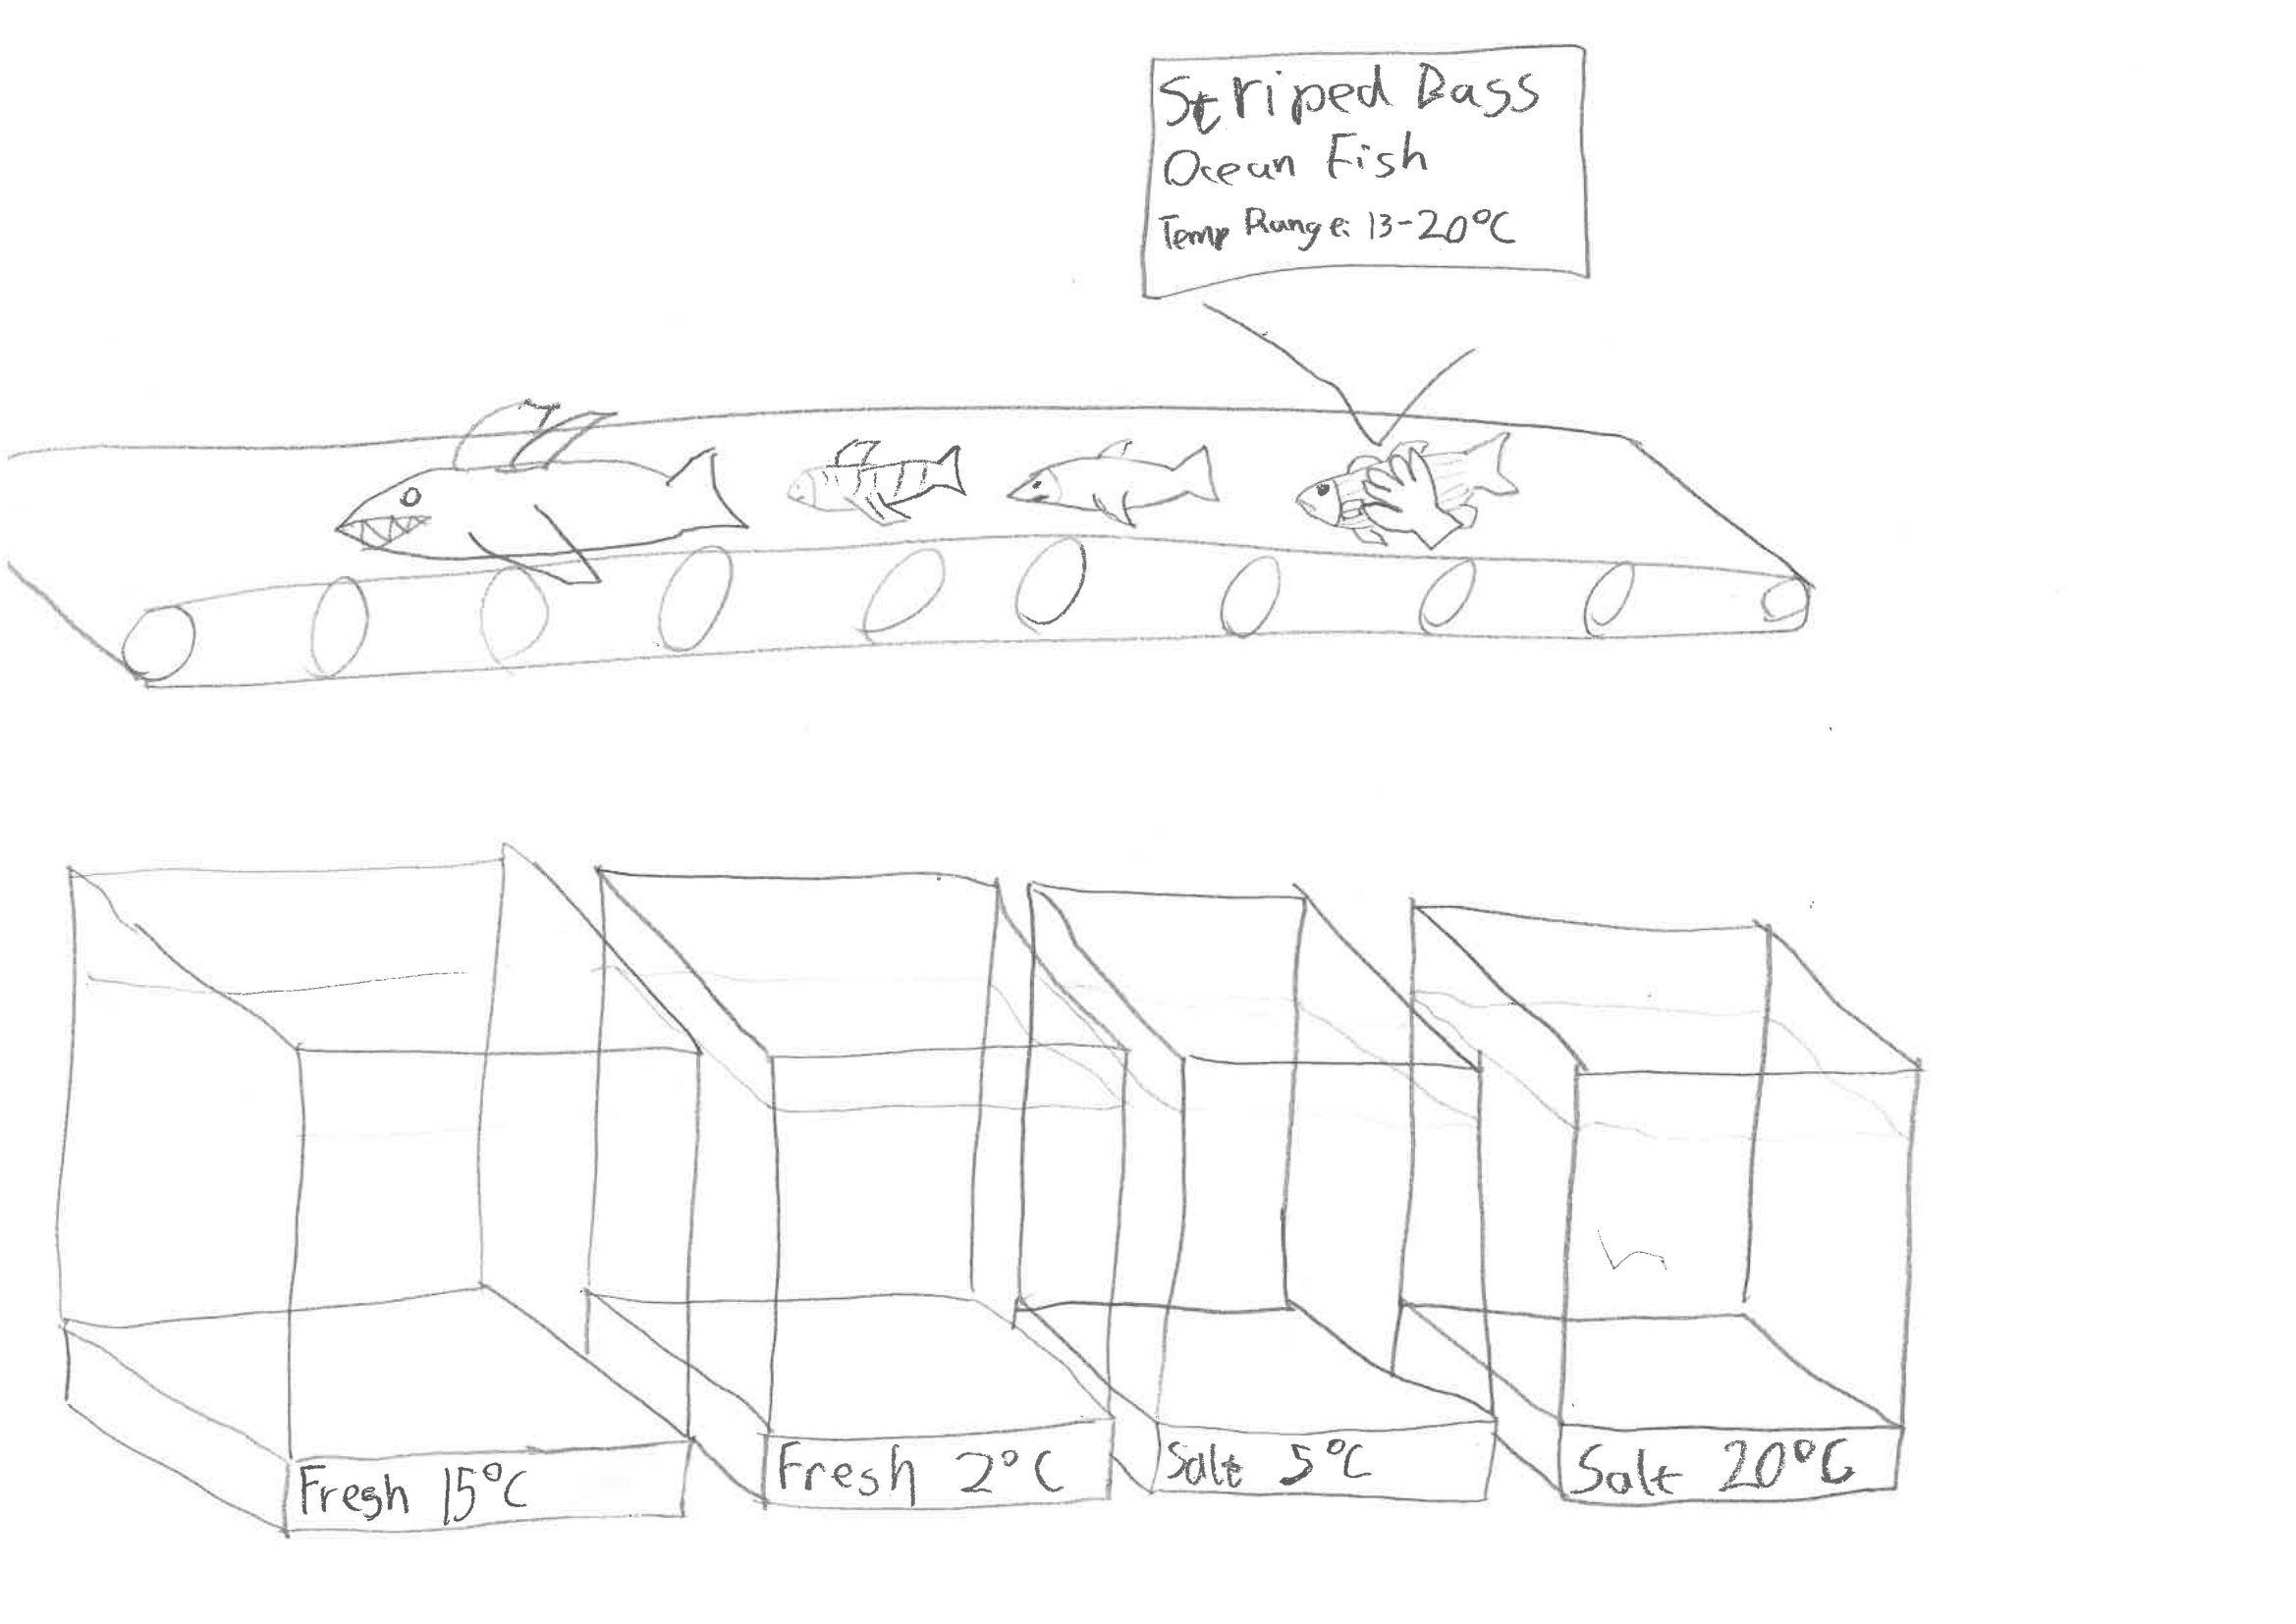 Striped Bass
Ocean Fish
Temp Range: 13-20°C
Fresh 15°C
Fresh 2°C
Salt 5°C
Salt 20°C